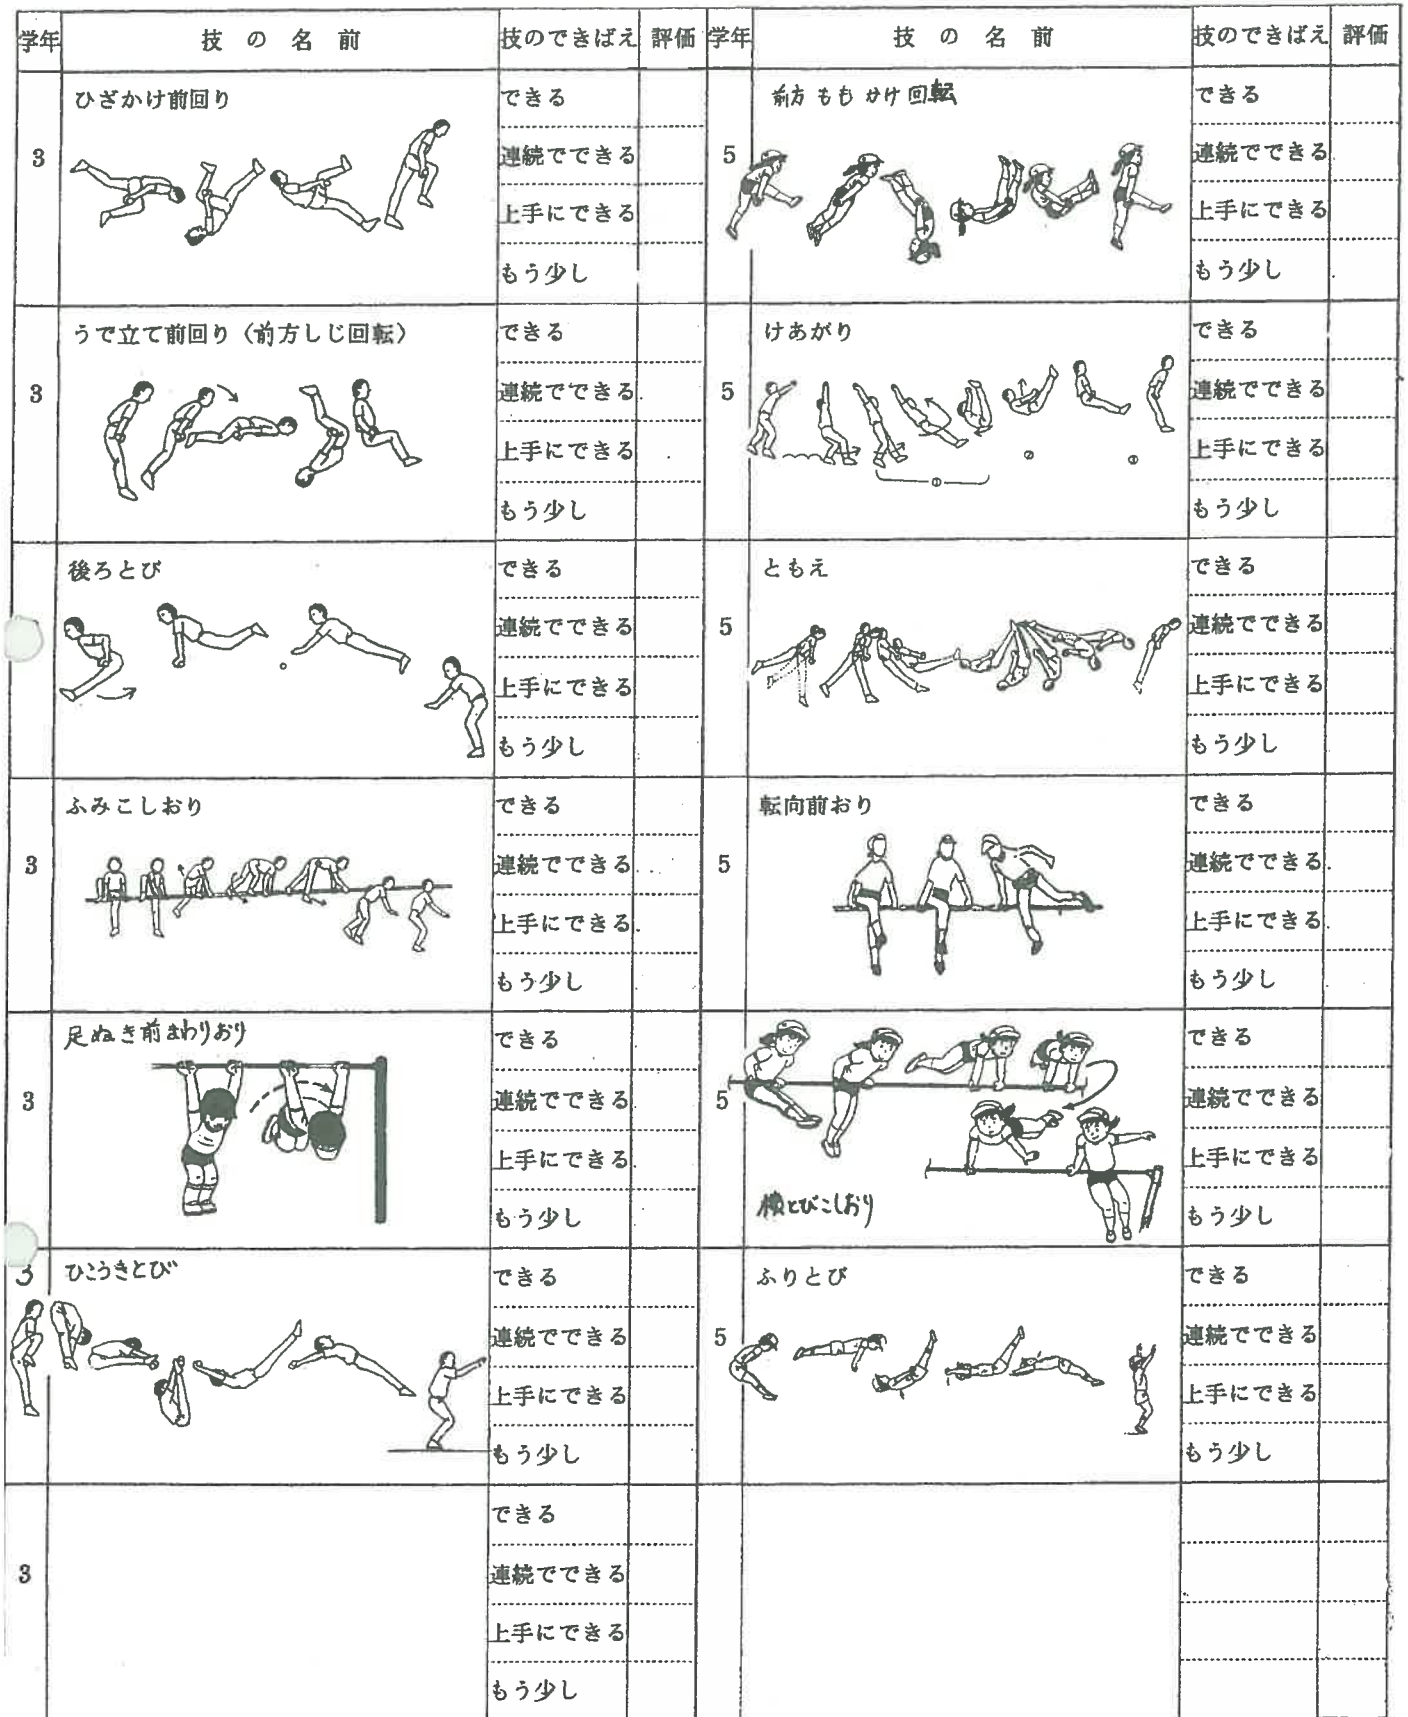 学年 技の名前 技のできばえ 評価 学年 技の名前 技のできばえ 評価
3
ひざかけ前回り
できる
連続でできる
上手にできる
もう少し
5
前方ももかけ回転
できる
連続でできる
上手にできる
もう少し
3
うで立て前回り(前方しじ回転)
できる
連続でできる
上手にできる
もう少し
5
けあがり
①
②
③
できる
連続でできる
上手にできる
もう少し
後ろとび
できる
連続でできる
上手にできる
もう少し
5
ともえ
できる
連続でできる
上手にできる
もう少し
3
ふみこしおり
できる
連続でできる
上手にできる
もう少し
5
転向前おり
できる
連続でできる
上手にできる
もう少し
3
足ぬき前まわりおり
できる
連続でできる
上手にできる
もう少し
5
横とびこしおり
できる
連続でできる
上手にできる
もう少し
3
ひこうきとび
できる
連続でできる
上手にできる
もう少し
5
ふりとび
できる
連続でできる
上手にできる
もう少し
3
できる
連続でできる
上手にできる
もう少し